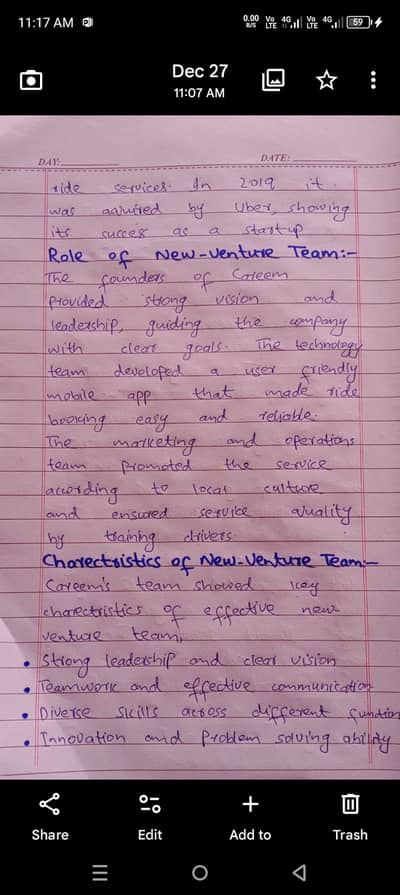 11:17 AM
0.00 B/S Vo LTE 4G Vo LTE 4G 59
Dec 27
11:07 AM
DAY:
DATE:
ride services. In 2019 it
was aqiured by Uber, showing
its succes as a startup
Role of New-Venture Team:-
The founders of Careem
provided strong vision and
leadership, guiding the company
with clear goals. The technology
team developed a user friendly
mobile app that made ride
booking easy and reliable.
The marketing and operations
team promoted the service
according to local culture
and ensured service quality
by training drivers.
Charectsistics of New-Venture Team:-
Careem's team showed key
charectristics of effective new
venture team;
• Strong leadership and clear vision
• Teamwork and effective communication
• Diverse skills across different function
• Innovation and Problem solving ability
Share
Edit
Add to
Trash